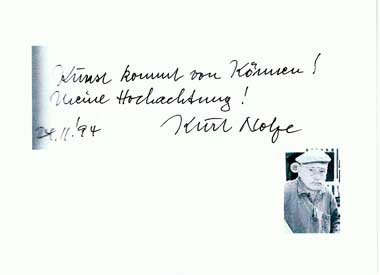 Kunst kommt von Können!
Meine Hochachtung!
24.11.'94 Kurt Nolze